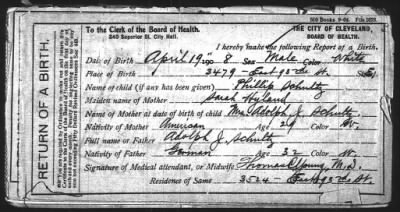 500 Books 9-04. File 5688.
To the Clerk of the Board of Health.
THE CITY OF CLEVELAND,
240 Superior St. City Hall.
BOARD OF HEALTH.
I hereby make the following Report of a Birth.
Date of Birth April 19 1908 Sex Male Color White
Place of Birth 2479 East 95th St.
Name of child (if any has been given) Phillip Schultz
Maiden name of Mother Sarah
Name of Mother at date of birth of child Mrs. Adolph J. Schultz
Nativity of Mother American Age 29 Color W.
Full name of Father Adolph J. Schultz
Nativity of Father German Age 32 Color W.
Signature of Medical attendant, or Midwife Thomas C. Young M.D.
Residence of Same 3524 East 93rd St.
RETURN OF A BIRTH.